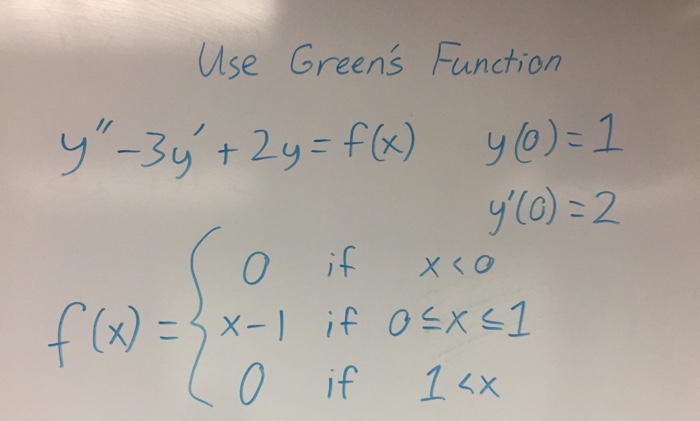 Use Green's Function
y"-3y'+2y=f(x) y(0)=1
y'(0)=2
0 if x<0
f(x)={ x-1 if 0≤x≤1
0 if 1<x